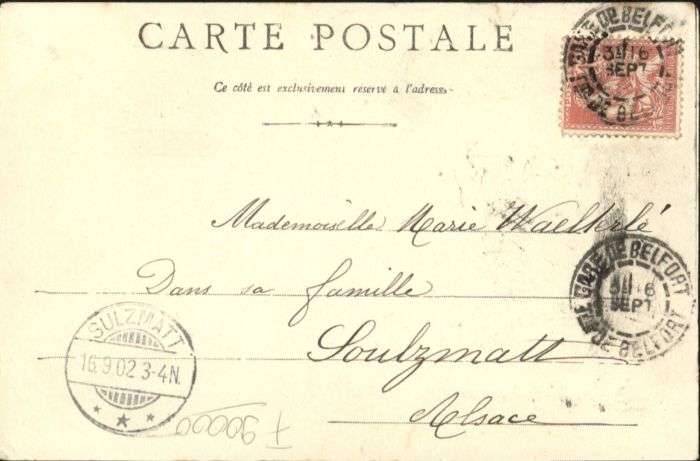 CARTE POSTALE
Ce côté est exclusivement réservé à l'adresse
GARE DE BELFORT
16
SEPT
Mademoiselle Marie Waelterlé
Dans sa famille
Soultzmatt
Alsace
GARE DE BELFORT
16
SEPT
DE BELFORT
SULZMATT
16.9.02 3-4N.
F90000